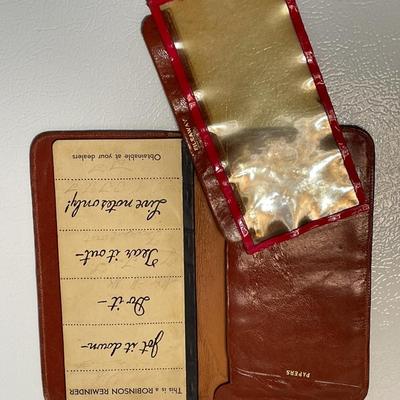 This is a ROBINSON REMINDER
Jot it down–
Do it–
Tear it out–
Live notes only!
Obtainable at your dealers
PAPERS